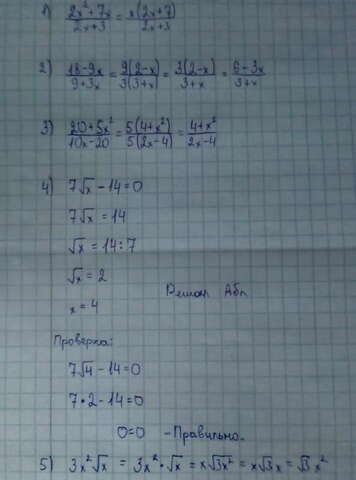 1) (2x²+7x)/(2x+3) = x(2x+7)/(2x+3)
2) (18-9x)/(9+3x) = 9(2-x)/3(3+x) = 3(2-x)/(3+x) = (6-3x)/(3+x)
3) (20+5x²)/(10x-20) = 5(4+x²)/5(2x-4) = (4+x²)/(2x-4)
4) 7√x - 14=0
7√x = 14
√x = 14:7
√x = 2
x = 4
Решал Абл
Проверка:
7√4 - 14=0
7•2 - 14=0
0=0 - Правильно.
5) 3x²√x = 3x²•√x = x√3x² = x√3x = √3 x²